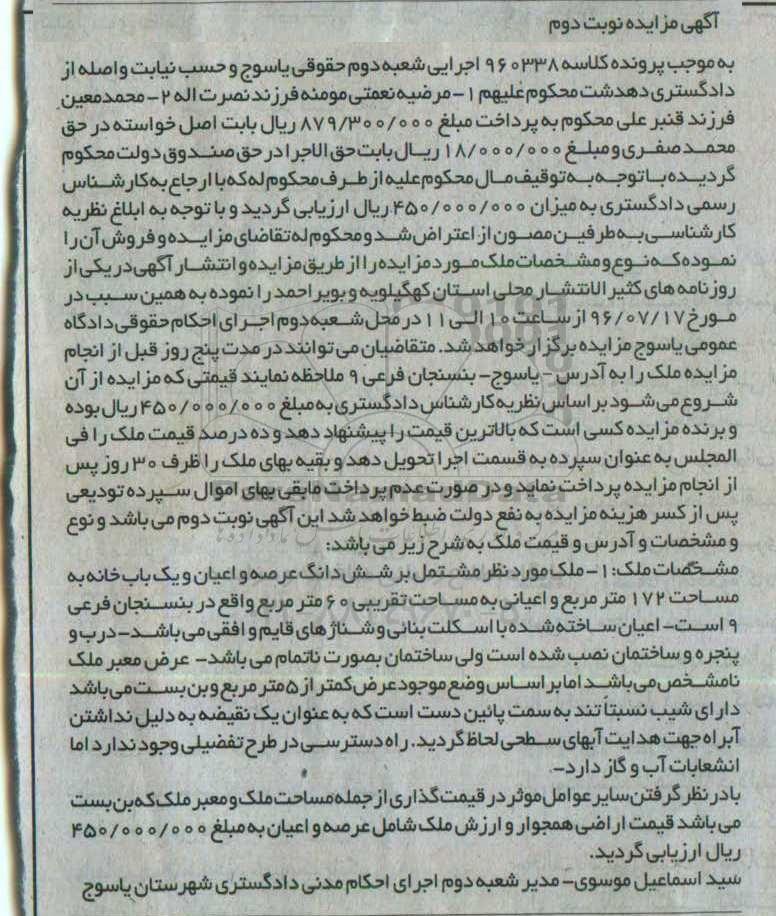 آگهی مزایده نوبت دوم
به موجب پرونده کلاسه ۹۶۰۳۳۸ اجرایی شعبه دوم حقوقی یاسوج و حسب نیابت واصله از
دادگستری دهدشت محکوم علیهم ۱- مرضیه نعمتی مومنه فرزند نصرت اله ۲- محمدمعین
فرزند قنبر علی محکوم به پرداخت مبلغ ۸۷۹/۳۰۰/۰۰۰ ریال بابت اصل خواسته در حق
محمد صفری و مبلغ ۱۸/۰۰۰/۰۰۰ ریال بابت حق الاجرا در حق صندوق دولت محکوم
گردیده با توجه به توقیف مال محکوم علیه از طرف محکوم له که با ارجاع به کارشناس
رسمی دادگستری به میزان ۴۵۰/۰۰۰/۰۰۰ ریال ارزیابی گردید و با توجه به ابلاغ نظریه
کارشناسی به طرفین مصون از اعتراض شد و محکوم له تقاضای مزایده و فروش آن را
نموده که نوع و مشخصات ملک مورد مزایده را از طریق مزایده و انتشار آگهی در یکی از
روزنامه های کثیرالانتشار محلی استان کهگیلویه و بویراحمد را نموده به همین سبب در
مورخ ۹۶/۰۷/۱۷ از ساعت ۱۰ الی ۱۱ در محل شعبه دوم اجرای احکام حقوقی دادگاه
عمومی یاسوج مزایده برگزار خواهد شد. متقاضیان می توانند در مدت پنج روز قبل از انجام
مزایده ملک را به آدرس - یاسوج- بنسنجان فرعی ۹ ملاحظه نمایند قیمتی که مزایده از آن
شروع می شود بر اساس نظریه کارشناس دادگستری به مبلغ ۴۵۰/۰۰۰/۰۰۰ ریال بوده
و برنده مزایده کسی است که بالاترین قیمت را پیشنهاد دهد و ده درصد قیمت ملک را فی
المجلس به عنوان سپرده به قسمت اجرا تحویل دهد و بقیه بهای ملک را ظرف ۳۰ روز پس
از انجام مزایده پرداخت نماید و در صورت عدم پرداخت مابقی بهای اموال سپرده تودیعی
پس از کسر هزینه مزایده به نفع دولت ضبط خواهد شد این آگهی نوبت دوم می باشد و نوع
و مشخصات و آدرس و قیمت ملک به شرح زیر می باشد:
مشخصات ملک: ۱- ملک مورد نظر مشتمل بر شش دانگ عرصه و اعیان و یک باب خانه به
مساحت ۱۷۲ متر مربع و اعیانی به مساحت تقریبی ۶۰ متر مربع واقع در بنسنجان فرعی
۹ است- اعیان ساخته شده با اسکلت بنائی و شناژهای قایم و افقی می باشد- درب و
پنجره و ساختمان نصب شده است ولی ساختمان بصورت ناتمام می باشد- عرض معبر ملک
نامشخص می باشد اما بر اساس وضع موجود عرض کمتر از ۵ متر مربع و بن بست می باشد
دارای شیب نسبتاً تند به سمت پائین دست است که به عنوان یک نقیضه به دلیل نداشتن
آبراه جهت هدایت آبهای سطحی لحاظ گردید. راه دسترسی در طرح تفضیلی وجود ندارد اما
انشعابات آب و گاز دارد-.
با در نظر گرفتن سایر عوامل موثر در قیمت گذاری از جمله مساحت ملک و معبر ملک که بن بست
می باشد قیمت اراضی همجوار و ارزش ملک شامل عرصه و اعیان به مبلغ ۴۵۰/۰۰۰/۰۰۰
ریال ارزیابی گردید.
سید اسماعیل موسوی- مدیر شعبه دوم اجرای احکام مدنی دادگستری شهرستان یاسوج